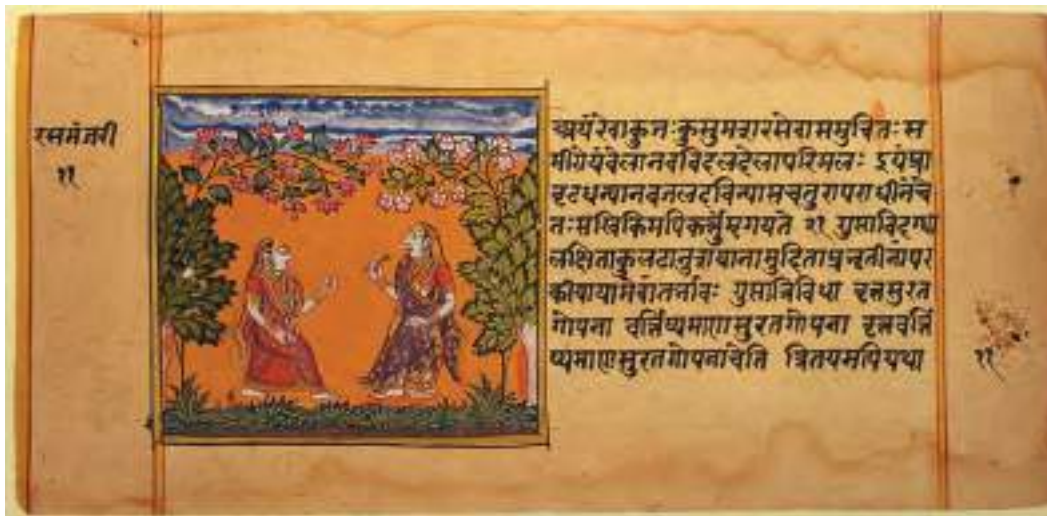 रसमंजरी
११
अयंरेवाकुंजःकुसुमशरसेवासमुचितःस
मीरोयंवेलानवविदलदेलापरिमलः इयंप्रा
वृटधन्यानवजलदविन्यासचतुरापराधीनंचे
तःसखिकिमपिकर्त्तुंमृगयते २१ गुप्ताविदग्धा
लक्षिताकुलटानुशयानामुदिताप्रभृतीनांपर
कीयायामेवांतर्भावः गुप्तात्रिविधा वृत्तसुरत
गोपना वर्त्तिष्यमाणसुरतगोपना वृत्तवर्त्ति
ष्यमाणसुरतगोपनाचेति त्रितयमपियथा
११